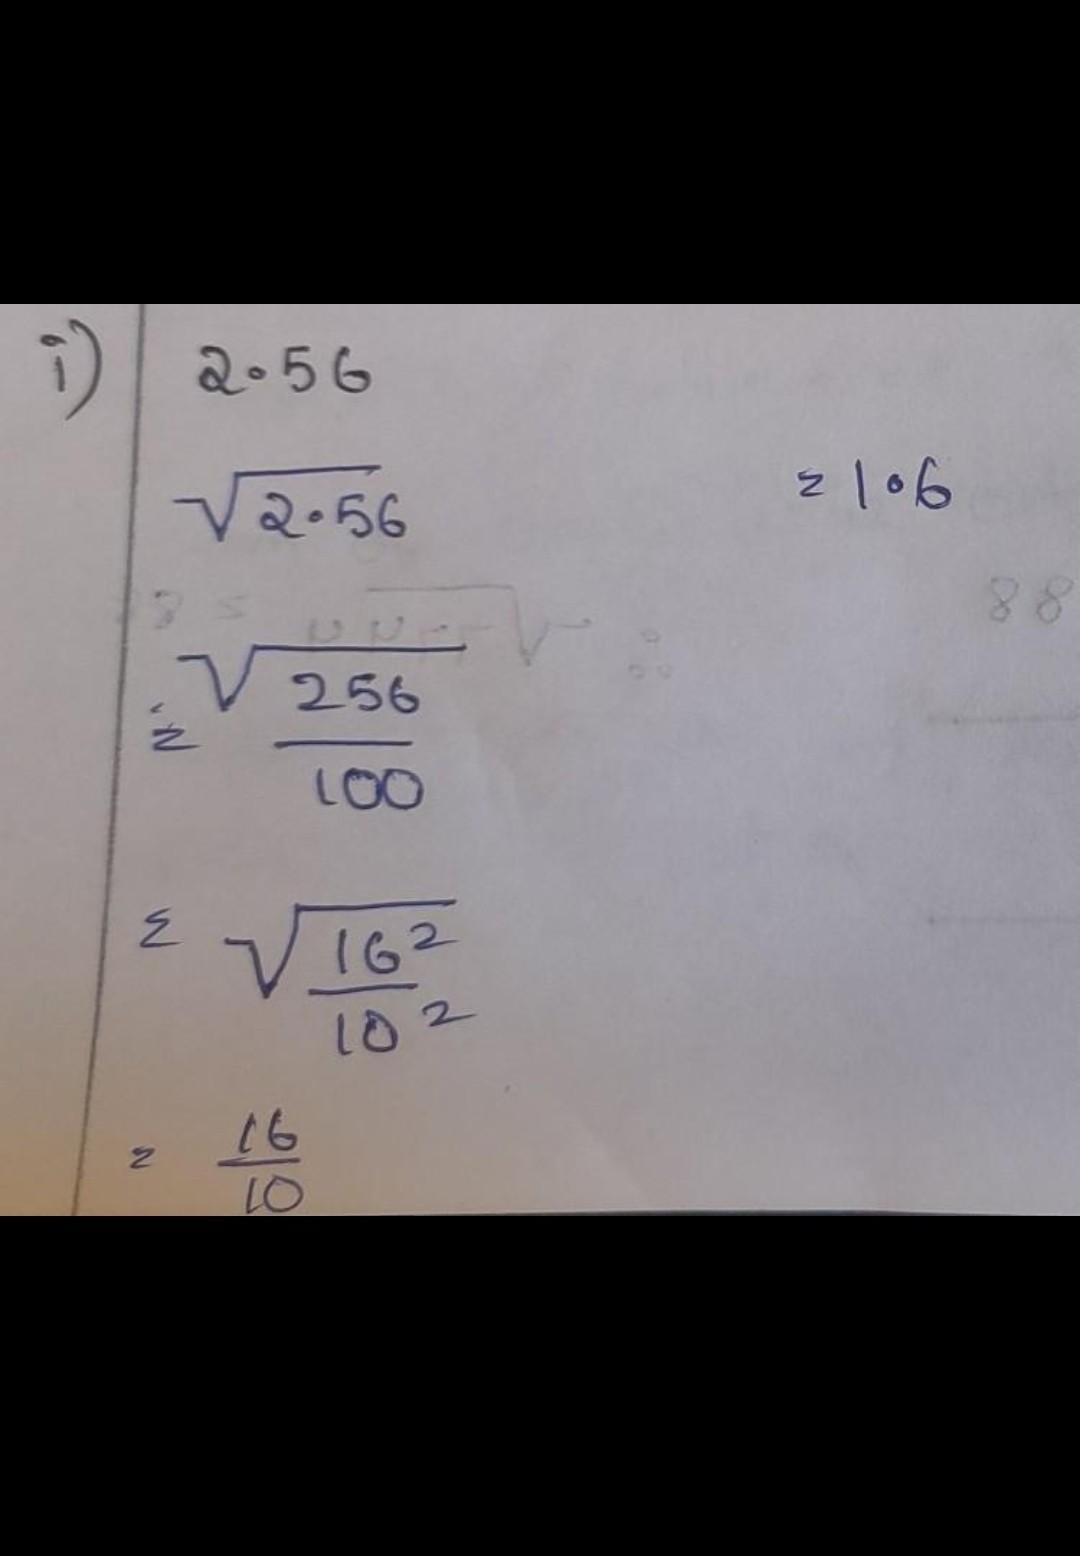 i) 2.56
√2.56 = 1.6
= √256/100
= √16²/10²
= 16/10
88